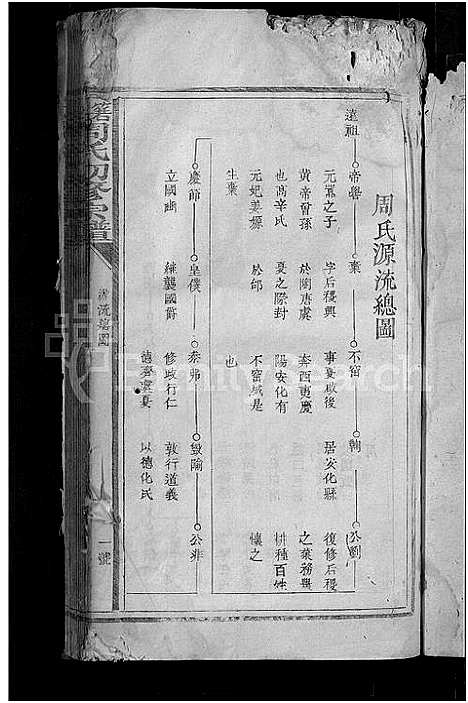 周氏源流總圖
遠祖 帝嚳 棄 不窋 鞠 公劉
元囂之子 字后稷興 事夏啟後 居安化縣 復修后稷
黃帝曾孫 於陶唐虞 奔西夷慶 之業務
也高辛氏 夏之際封 陽安化有 耕種百姓
元妃姜嫄 於邰 不窋城是 懷之
生棄 也
慶節 皇僕 差弗 毀隃 公非
立國豳 繼襲國爵 修政行仁 敦行道義
德 以德化民
周氏初修宗譜
源流總圖
一號